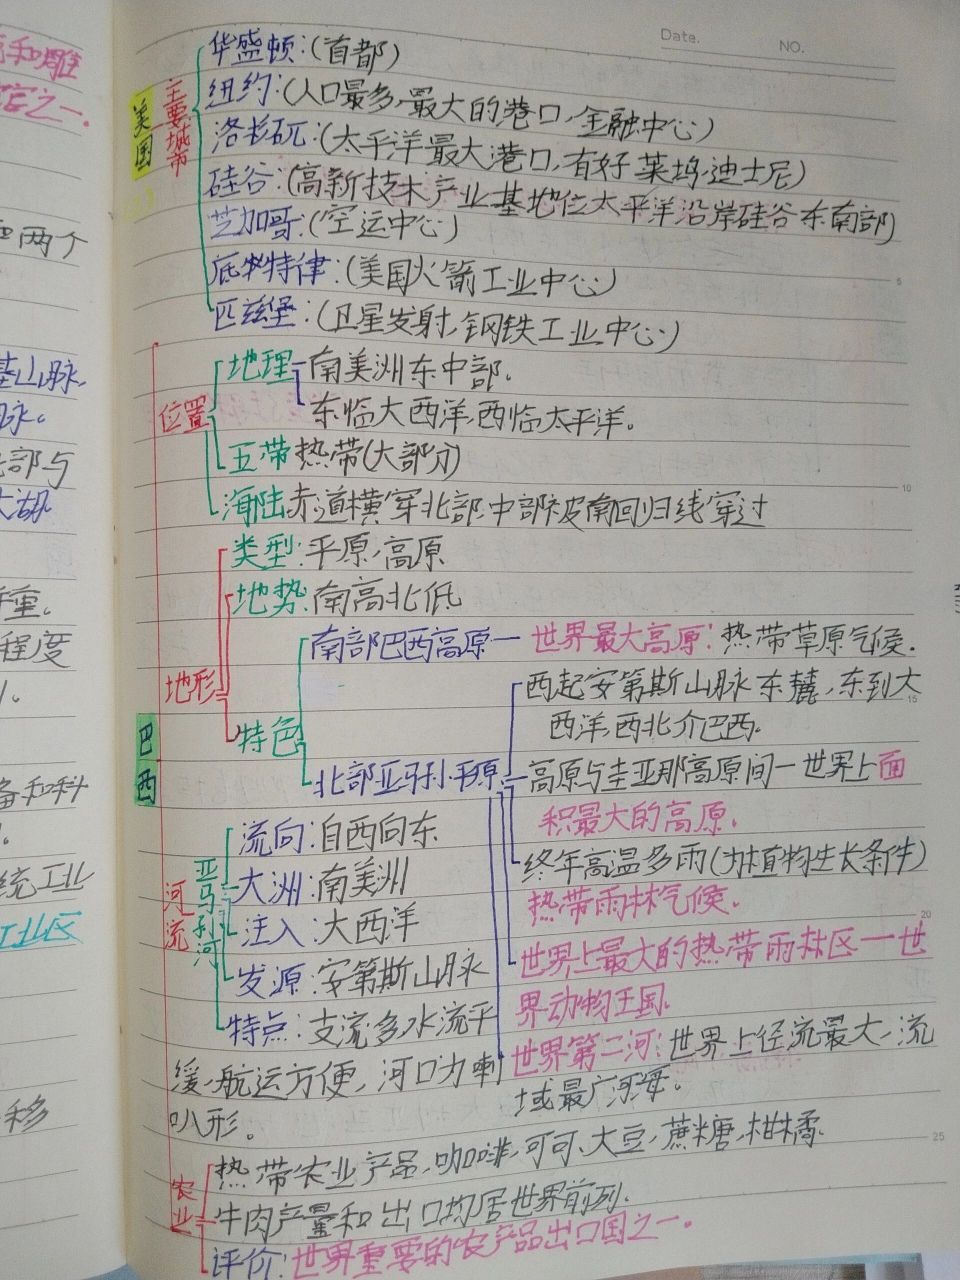 Date.
NO.
美国
主要城市
华盛顿:(首都)
纽约:(人口最多,最大的港口,金融中心)
洛杉矶:(太平洋最大港口,有好莱坞,迪士尼)
硅谷:(高新技术产业基地位太平洋沿岸硅谷东南部)
芝加哥:(空运中心)
底特律:(美国火箭工业中心)
匹兹堡:(卫星发射,钢铁工业中心)
巴西
位置
地理 南美洲东中部.
东临大西洋,西临太平洋.
五带 热带(大部分)
海陆 赤道横穿北部,中部被南回归线穿过
地形
类型:平原,高原
地势:南高北低
特色
南部巴西高原一世界最大高原:热带草原气候.
北部亚马孙平原
西起安第斯山脉东麓,东到大
西洋,西北介巴西.
高原与圭亚那高原间一世界上面
积最大的高原.
终年高温多雨(为植物生长条件)
热带雨林气候.
世界上最大的热带雨林区一世
界动物王国.
世界第二河:世界上径流最大,流
域最广河
河流
亚马孙河
流向:自西向东
大洲:南美洲
注入:大西洋
发源:安第斯山脉
特点:支流多水流平
缓,航运方便,河口为喇
叭形。
农业
热带农业产品,咖啡,可可、大豆,蔗糖,柑橘.
牛肉产量和出口均居世界前列.
评价:世界重要的农产品出口国之一.
5
10
15
20
25
和雕
之一.
两个
山脉,
脉。
部与
大湖.
重。
程度
备和科
统工业
工业区
移